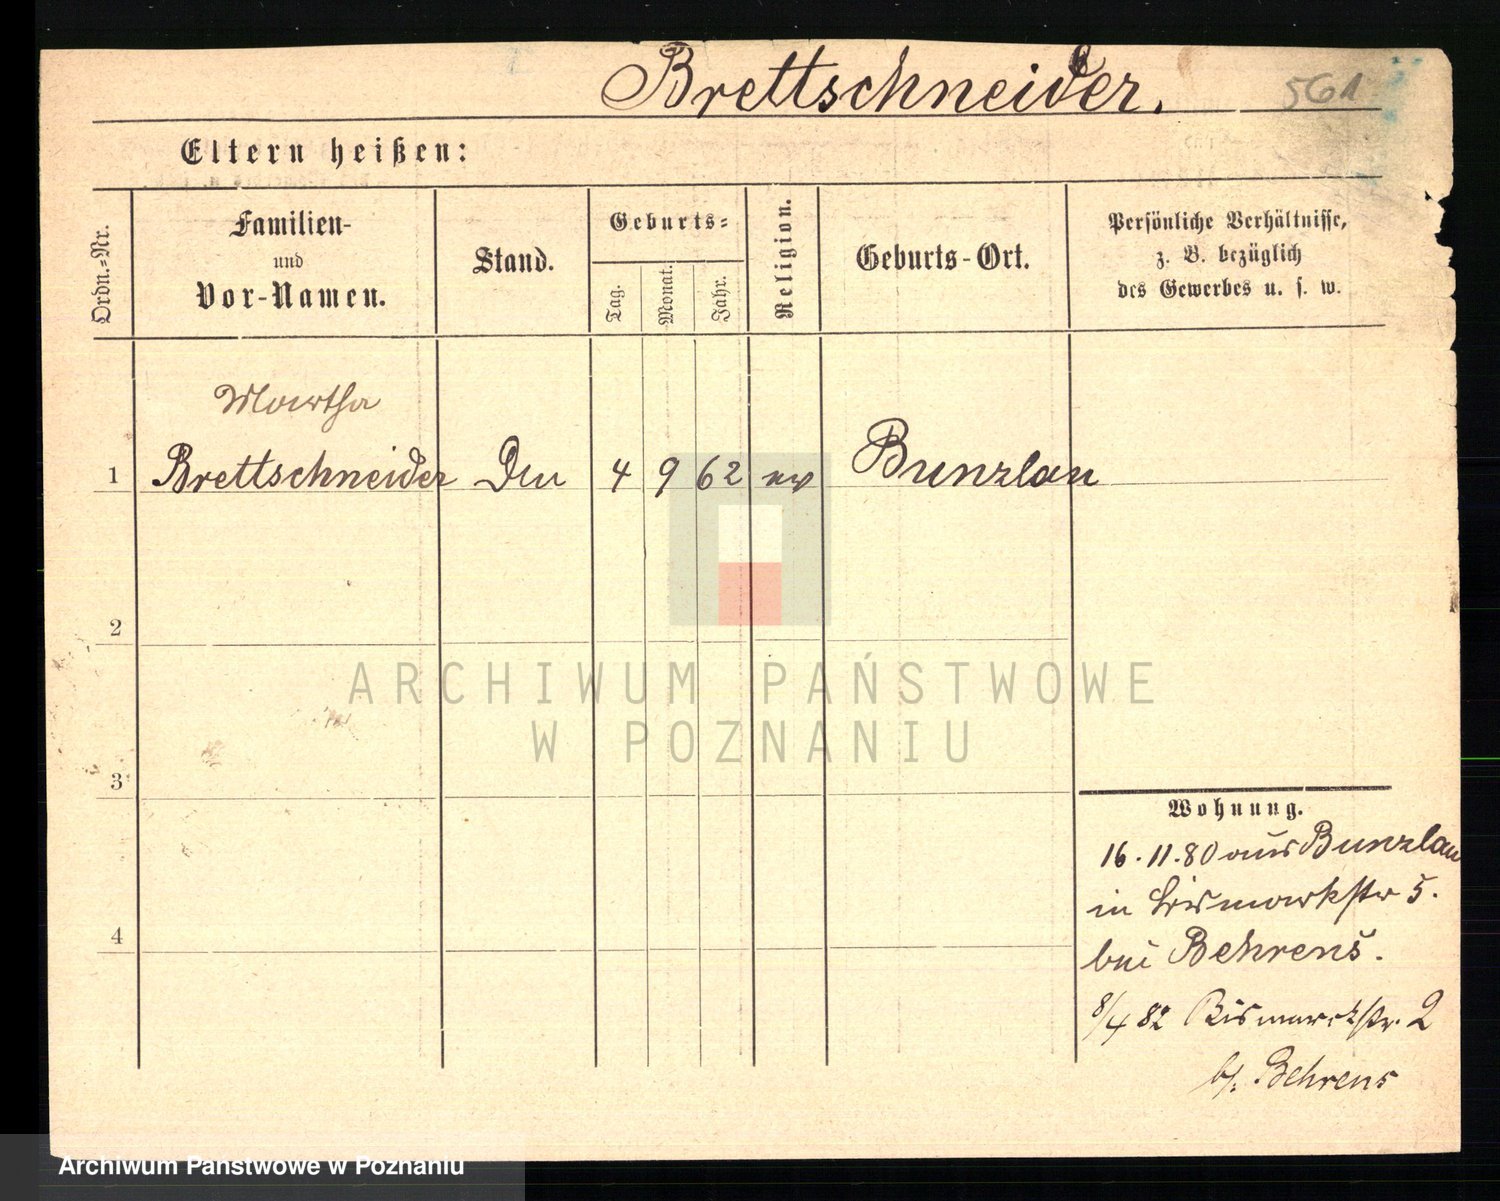 Brettschneider. 561
Eltern heißen:
Ordn.-Nr.
Familien-
und
Vor-Namen.
Stand.
Geburts-
Tag.
Monat.
Jahr.
Religion.
Geburts-Ort.
Persönliche Verhältnisse,
z. B. bezüglich
des Gewerbes u. s. w.
Martha
1 Brettschneider 4 9 62 ev Bunzlau
2
3
4
ARCHIWUM PAŃSTWOWE
W POZNANIU
Wohnung.
16.11.80 aus Bunzlau
in Bismarkstr 5.
bei Behrens.
8/4 82 Bismarckstr. 2
b/. Behrens
Archiwum Państwowe w Poznaniu